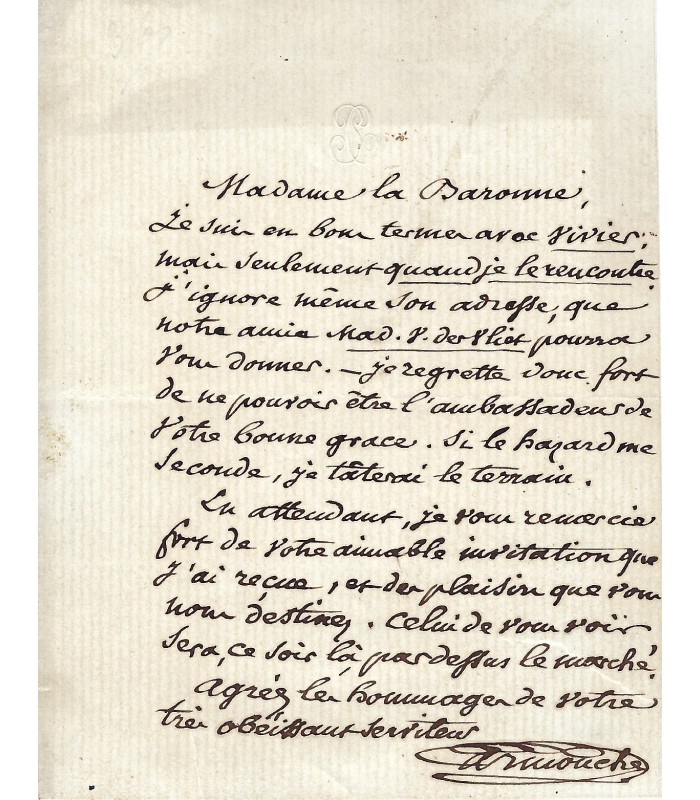 Madame la Baronne,
Je suis en bons termes avec Vivier;
mais seulement quand je le rencontre
J'ignore même son adresse, que
notre amie Mad. V. der Vliet pourra
vous donner. — je regrette donc fort
de ne pouvoir être l'ambassadeur de
Votre bonne grace. Si le hazard me
seconde, je tâterai le terrain.
En attendant, je vous remercie
fort de votre aimable invitation que
j'ai reçue, et des plaisirs que vous
nous destinez. Celui de vous voir
sera, ce soir là, pardessus le marché.
Agréez les hommages de votre
très obéissant serviteur